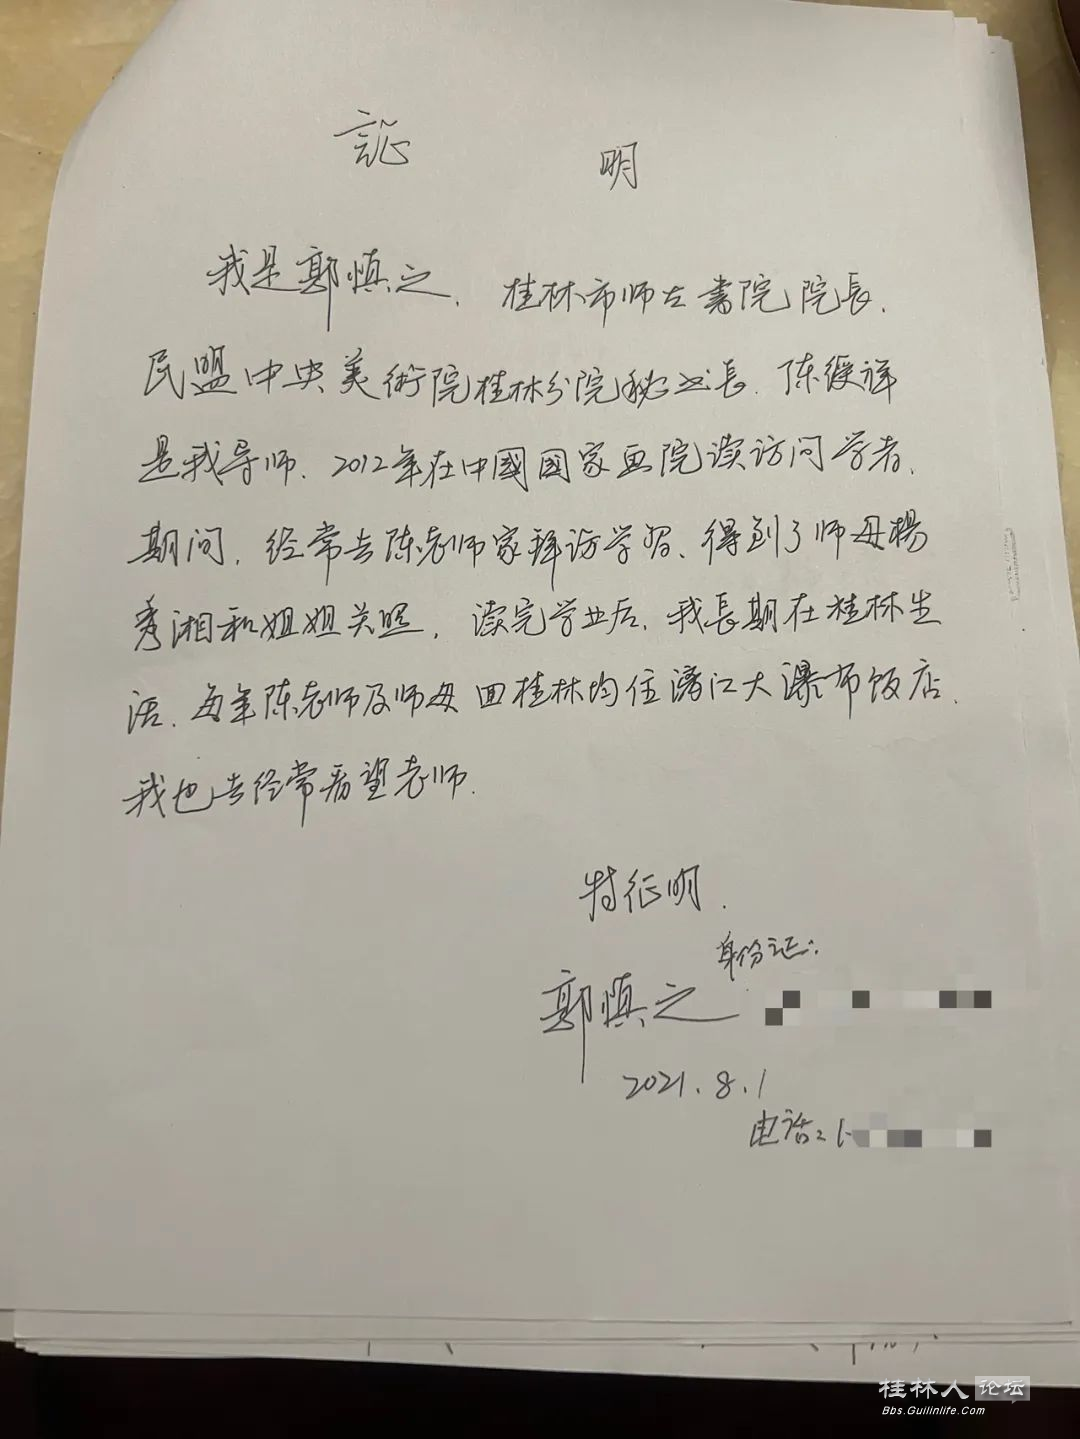 証 明
我是郭慎之、桂林市师古書院院長、
民盟中央美術院桂林分院秘书長、陈绶祥
是我导师、2012年在中國國家画院读访问学者、
期间、经常去陈老师家拜访学習、得到了师母楊
秀湘和姐姐关照、读完学业后、我長期在桂林生
活、每年陈老师及师母回桂林均住漓江大瀑布饭店、
我也去经常看望老师.
特征明.
身份证:
郭慎之
2021.8.1
电话:1
桂林人论坛
Bbs.Guilinlife.Com